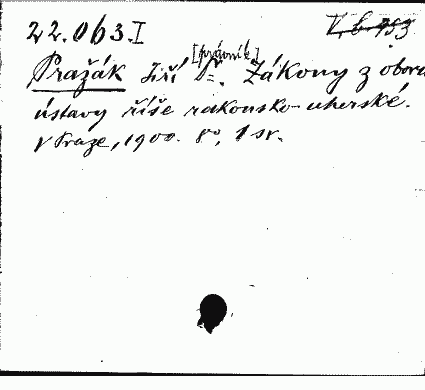 22.063.I V.b.953
[právník]
Pražák Jiří Dr. Zákony z oboru
ústavy říše rakousko-uherské.
V Praze, 1900. 8º, 1 sv.